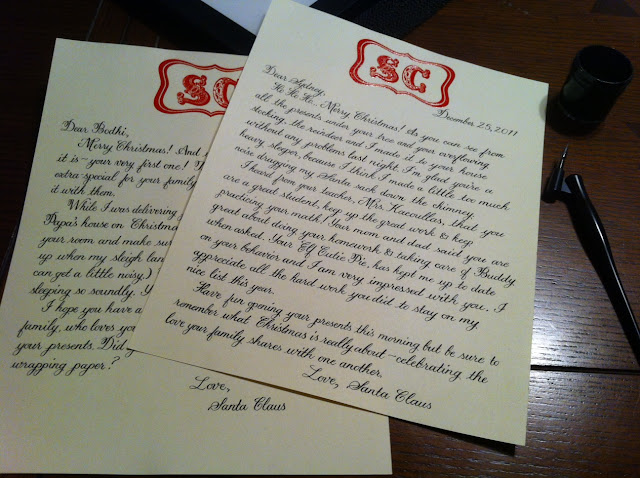 SC
Dear Bodhi,
Merry Christmas! And
it is—your very first one!
extra special for your family
it with them.
While I was delivering
Papa's house on Christmas
your room and make su
up when my sleigh lan
can get a little noisy.)
sleeping so soundly. Y
I hope you have a
family, who loves yo
your presents. Did
wrapping paper?
Love,
Santa Claus
SC
December 25, 2011
Dear Sydney,
Ho Ho Ho... Merry Christmas! As you can see from
all the presents under your tree and your overflowing
stocking, the reindeer and I made it to your house
without any problems last night. I'm glad you're a
heavy sleeper, because I think I made a little too much
noise dragging my Santa sack down the chimney.
I heard from your teacher, Mrs. Kacoullas, that you
are a great student, keep up the great work & keep
practicing your math! Your mom and dad said you are
great about doing your homework & taking care of Buddy
when asked. Your Elf Cutie Pie, has kept me up to date
on your behavior and I am very impressed with you. I
appreciate all the hard work you did to stay on my
nice list this year.
Have fun opening your presents this morning but be sure to
remember what Christmas is really about—celebrating the
love your family shares with one another.
Love, Santa Claus